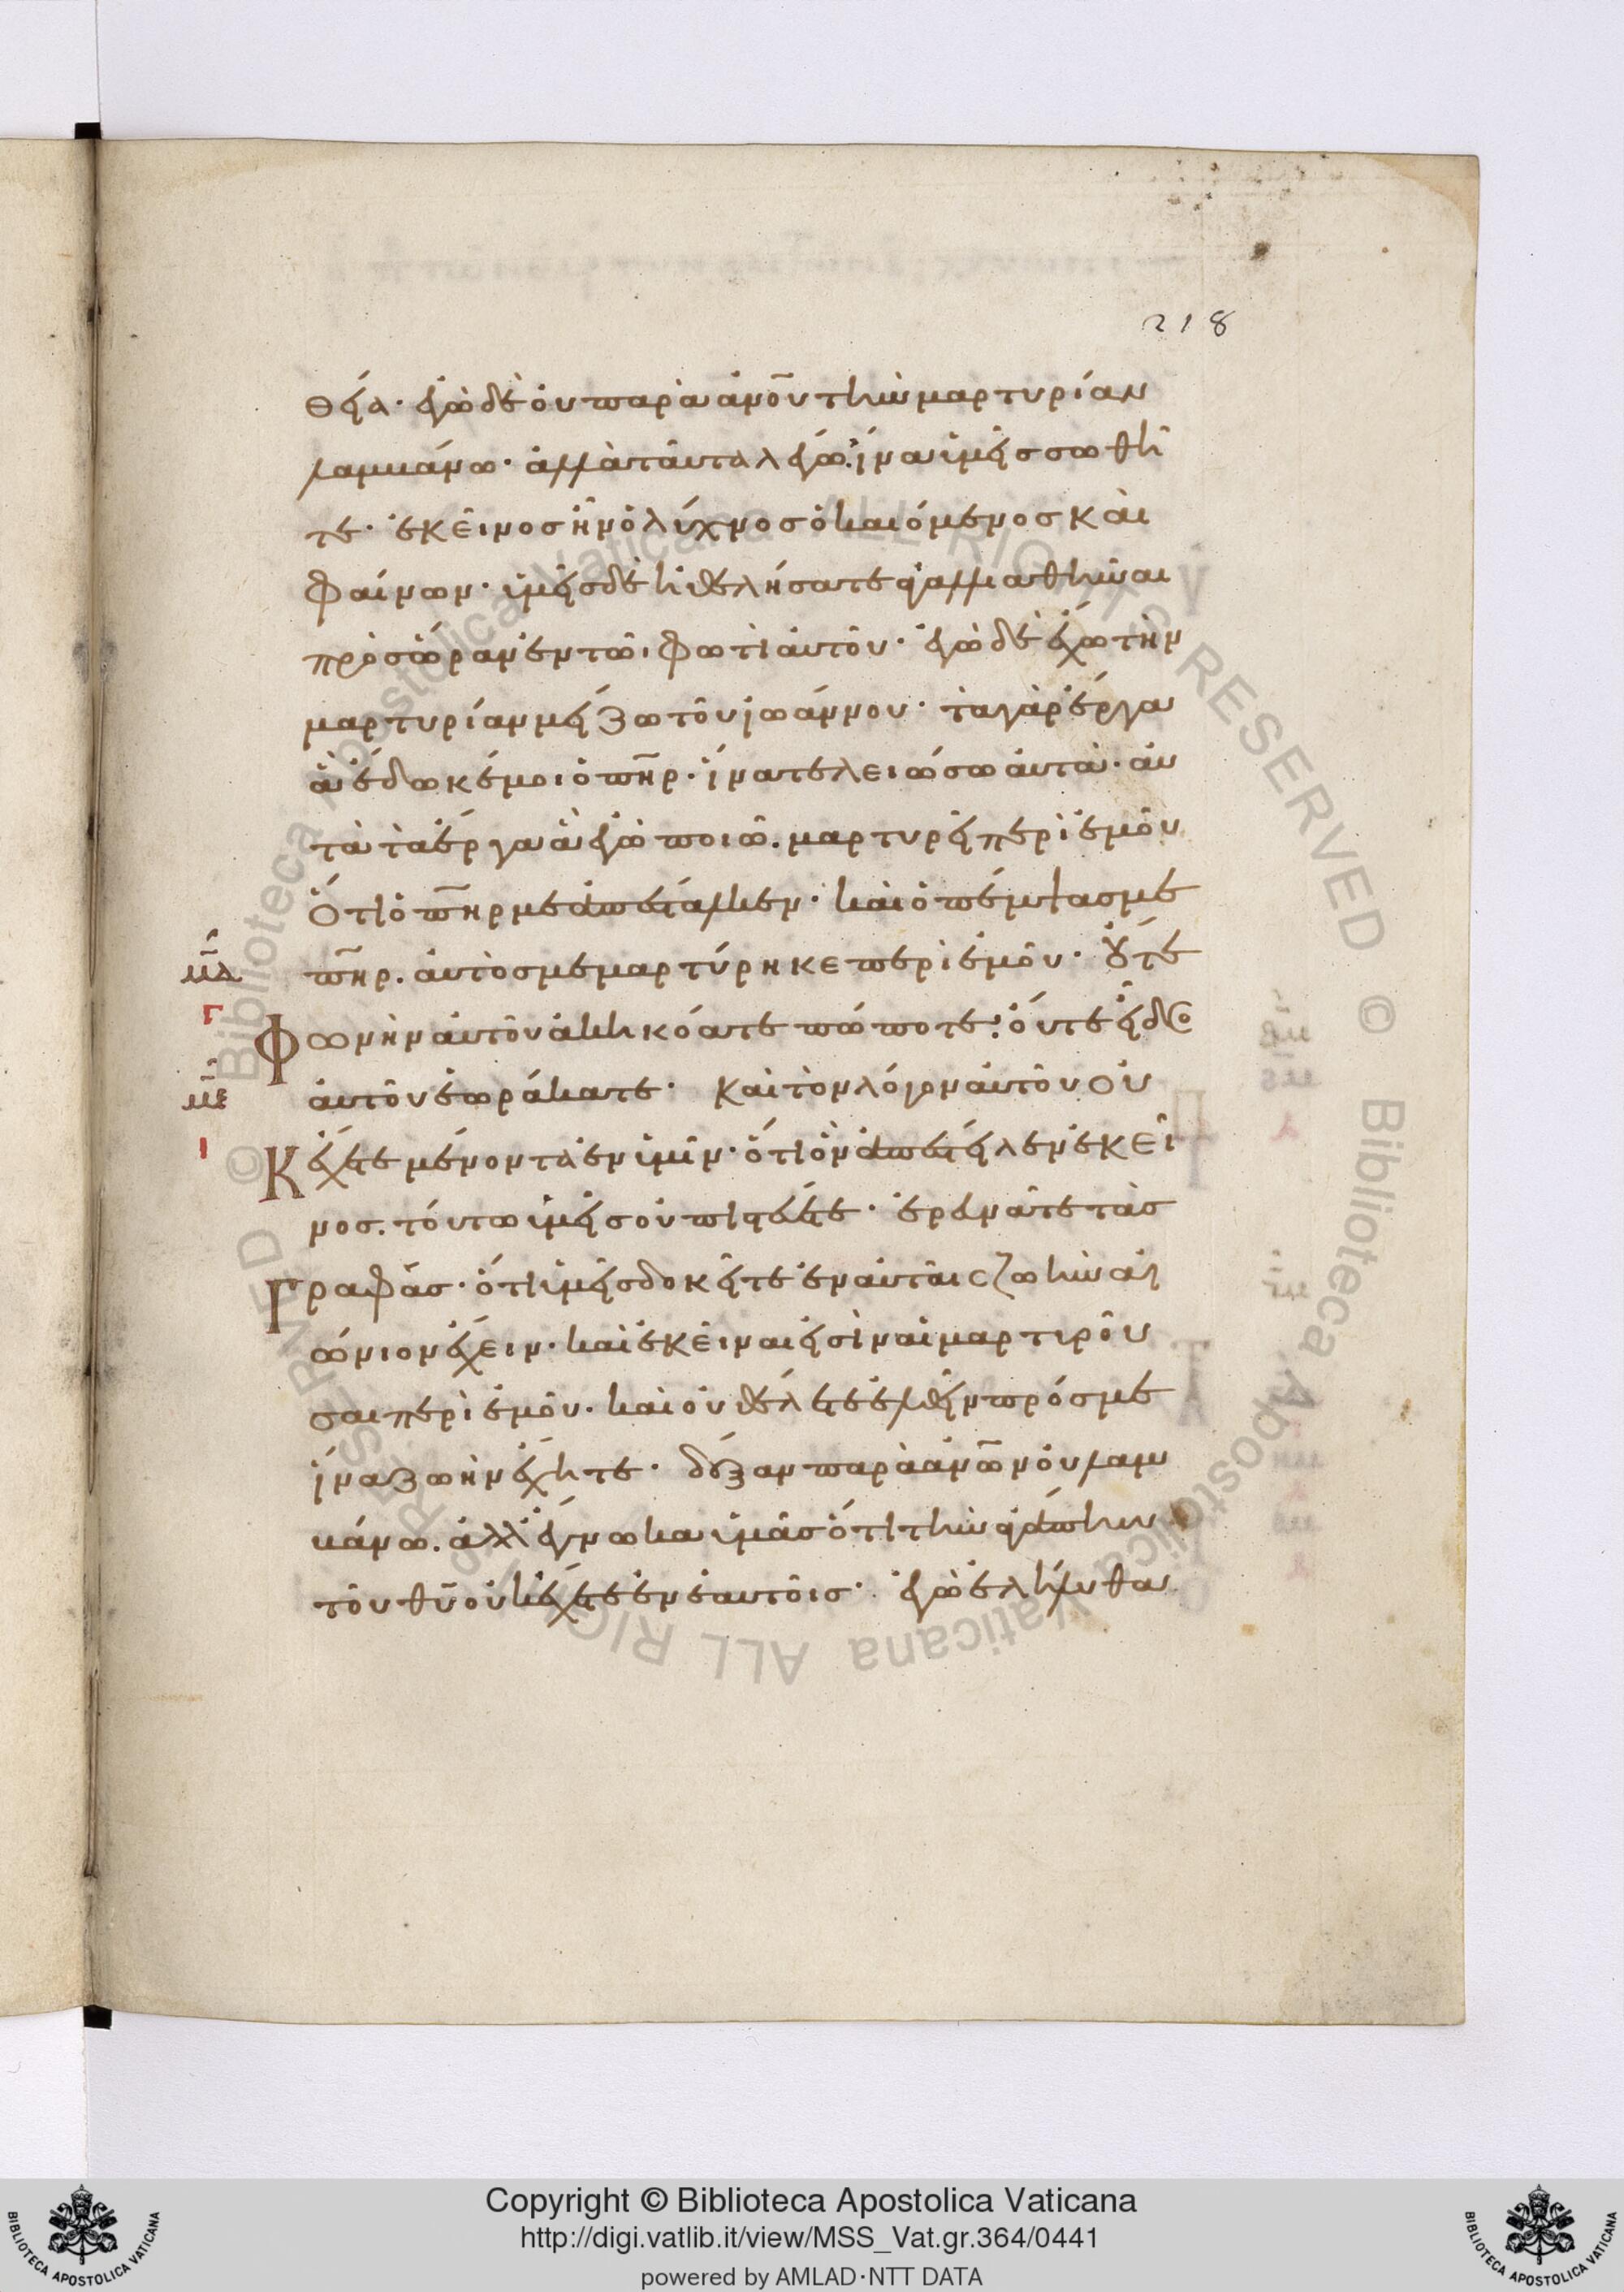 218
θεία· ἐγὼ δὲ οὐ παρὰ ἀνου τὴν μαρτυρίαν
λαμβάνω· ἀλλὰ ταῦτα λέγω· ἵνα ὑμεῖς σωθῆ
τε· ἐκεῖνος ἦν ὁ λύχνος ὁ καιόμενος καὶ
φαίνων· ὑμεῖς δὲ ἠθελήσατε ἀγαλλιαθῆναι
πρὸς ὥραν ἐν τῶι φωτὶ αὐτοῦ· ἐγὼ δὲ ἔχω τὴν
μαρτυρίαν μείζω τοῦ ἰωάννου· τὰ γὰρ ἔργα
ἃ ἔδωκέ μοι ὁ πηρ· ἵνα τελειώσω αὐτά· αὐ
τὰ τὰ ἔργα ἃ ἐγὼ ποιῶ· μαρτυρεῖ περὶ ἐμοῦ
ὅτι ὁ πηρ με ἀπέσταλκεν· καὶ ὁ πέμψας με
μδ πηρ· αὐτὸς μεμαρτύρηκε περὶ ἐμοῦ· οὔτε
Γ φωνὴν αὐτοῦ ἀκηκόατε πώποτε· οὔτε εἶδος
με αὐτοῦ ἑωράκατε· καὶ τὸν λόγον αὐτοῦ οὐ
Ι κ ἔχετε μένοντα ἐν ὑμῖν· ὅτι ὃν ἀπέστειλεν ἐκεῖ
νος· τούτω ὑμεῖς οὐ πιστεύετε· ἐρευνᾶτε τὰς
γραφάς· ὅτι ὑμεῖς δοκεῖτε ἐν αὐταῖς ζωὴν αἰ
ώνιον ἔχειν· καὶ ἐκεῖναι εἰσὶν αἱ μαρτυροῦ
σαι περὶ ἐμοῦ· καὶ οὐ θέλετε ἐλθεῖν πρός με
ἵνα ζωὴν ἔχητε· δόξαν παρὰ ἀνων οὐ λαμ
βάνω· ἀλλ' ἔγνωκα ὑμᾶς ὅτι τὴν ἀγάπην
τοῦ θυ οὐκ ἔχετε ἐν ἑαυτοῖς· ἐγὼ ἐλήλυθα
Copyright © Biblioteca Apostolica Vaticana
http://digi.vatlib.it/view/MSS_Vat.gr.364/0441
powered by AMLAD·NTT DATA
BIBLIOTECA APOSTOLICA VATICANA
BIBLIOTECA APOSTOLICA VATICANA
© Biblioteca Apostolica Vaticana ALL RIGHTS RESERVED © Biblioteca Apostolica Vaticana ALL RIGHTS RESERVED